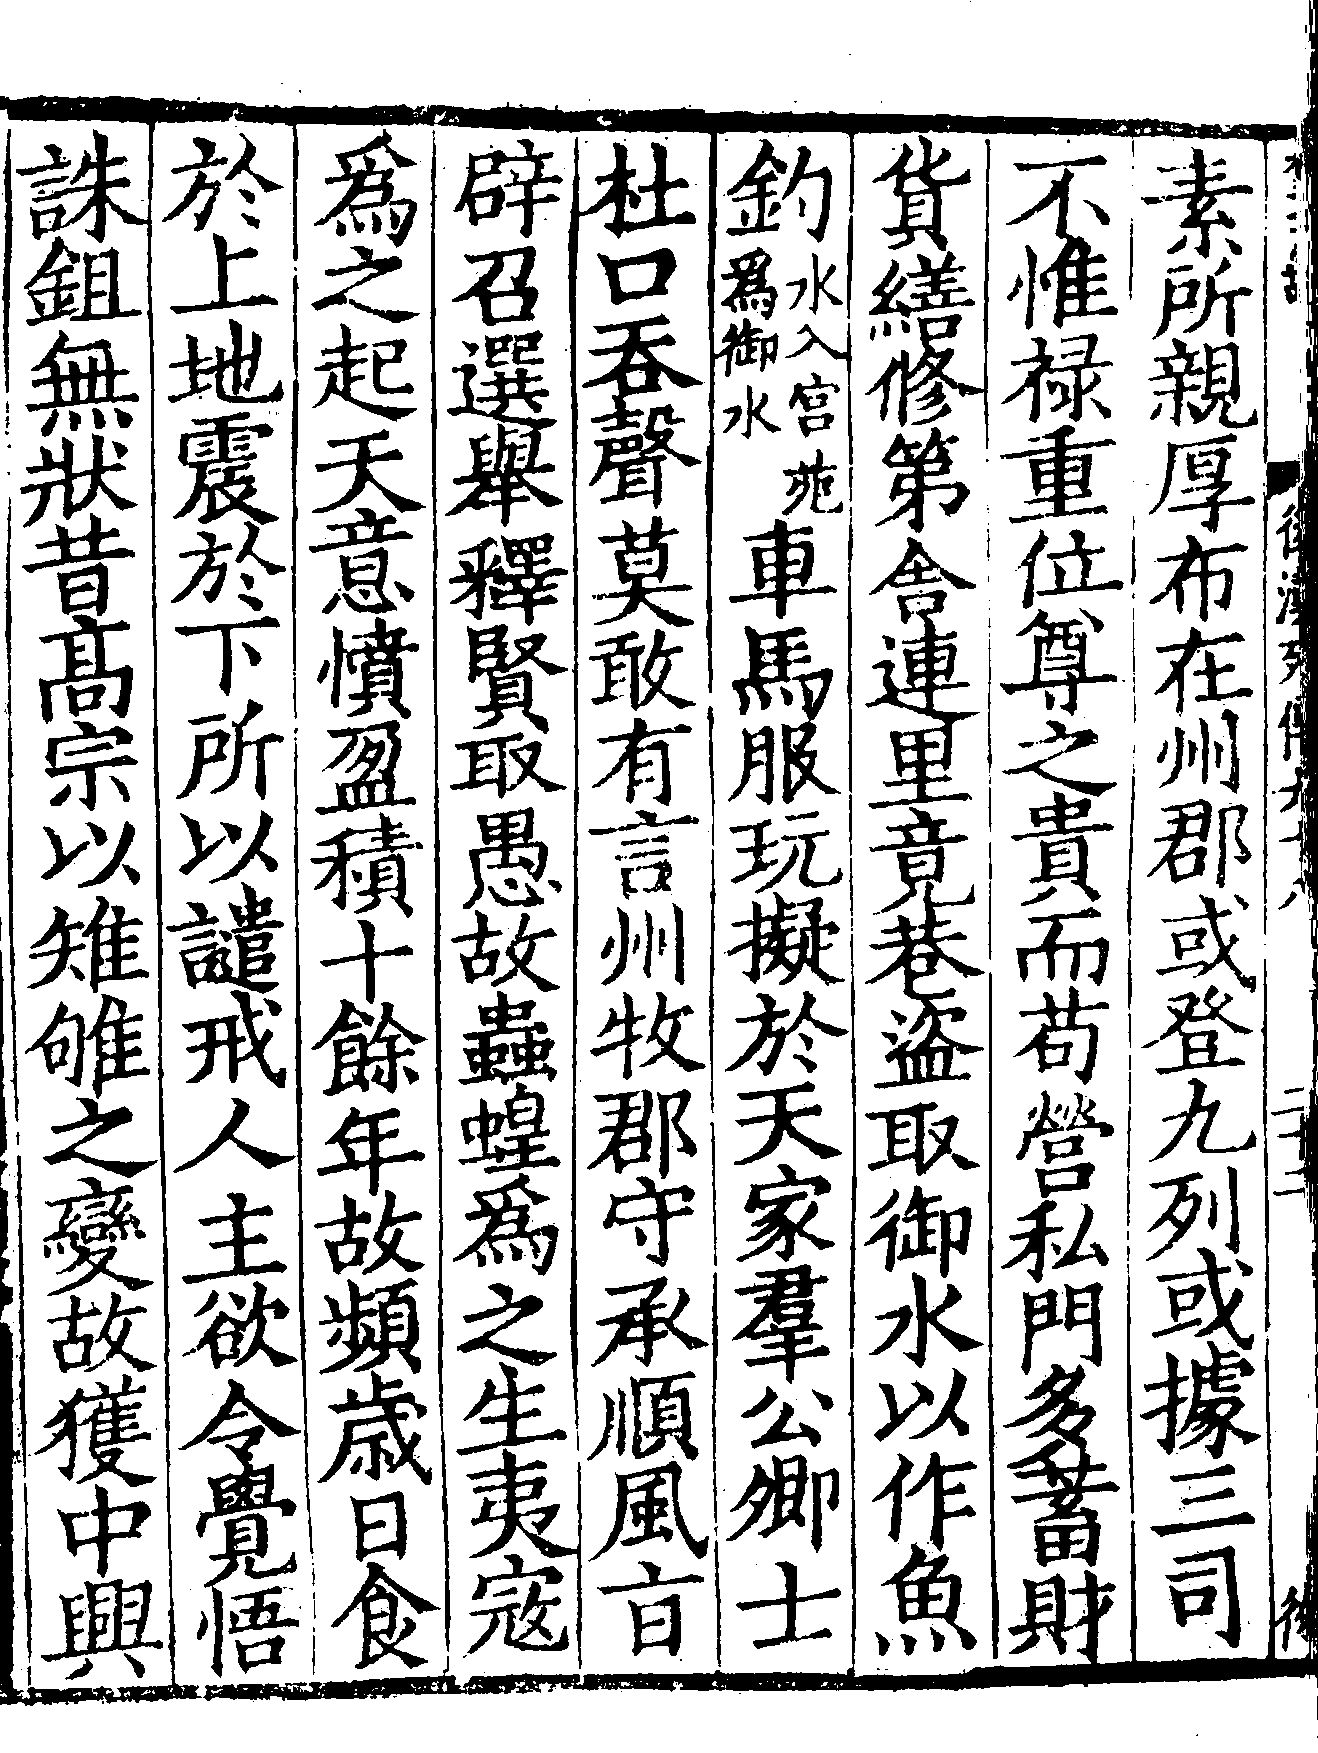 後漢列傳
二十二
素所親厚布在州郡或登九列或據三司
不惟禄重位尊之貴而苟營私門多蓄財
貨繕修第舎連里竟巷盜取御水以作魚
釣水入宮苑爲御水車馬服玩擬於天家羣公卿士
杜口吞聲莫敢有言州牧郡守承順風旨
辟召選舉釋賢取愚故蟲蝗爲之生夷寇
爲之起天意憤盈積十餘年故頻歳日食
於上地震於下所以譴戒人主欲令覺悟
誅鉏無狀昔髙宗以雉雊之變故獲中興